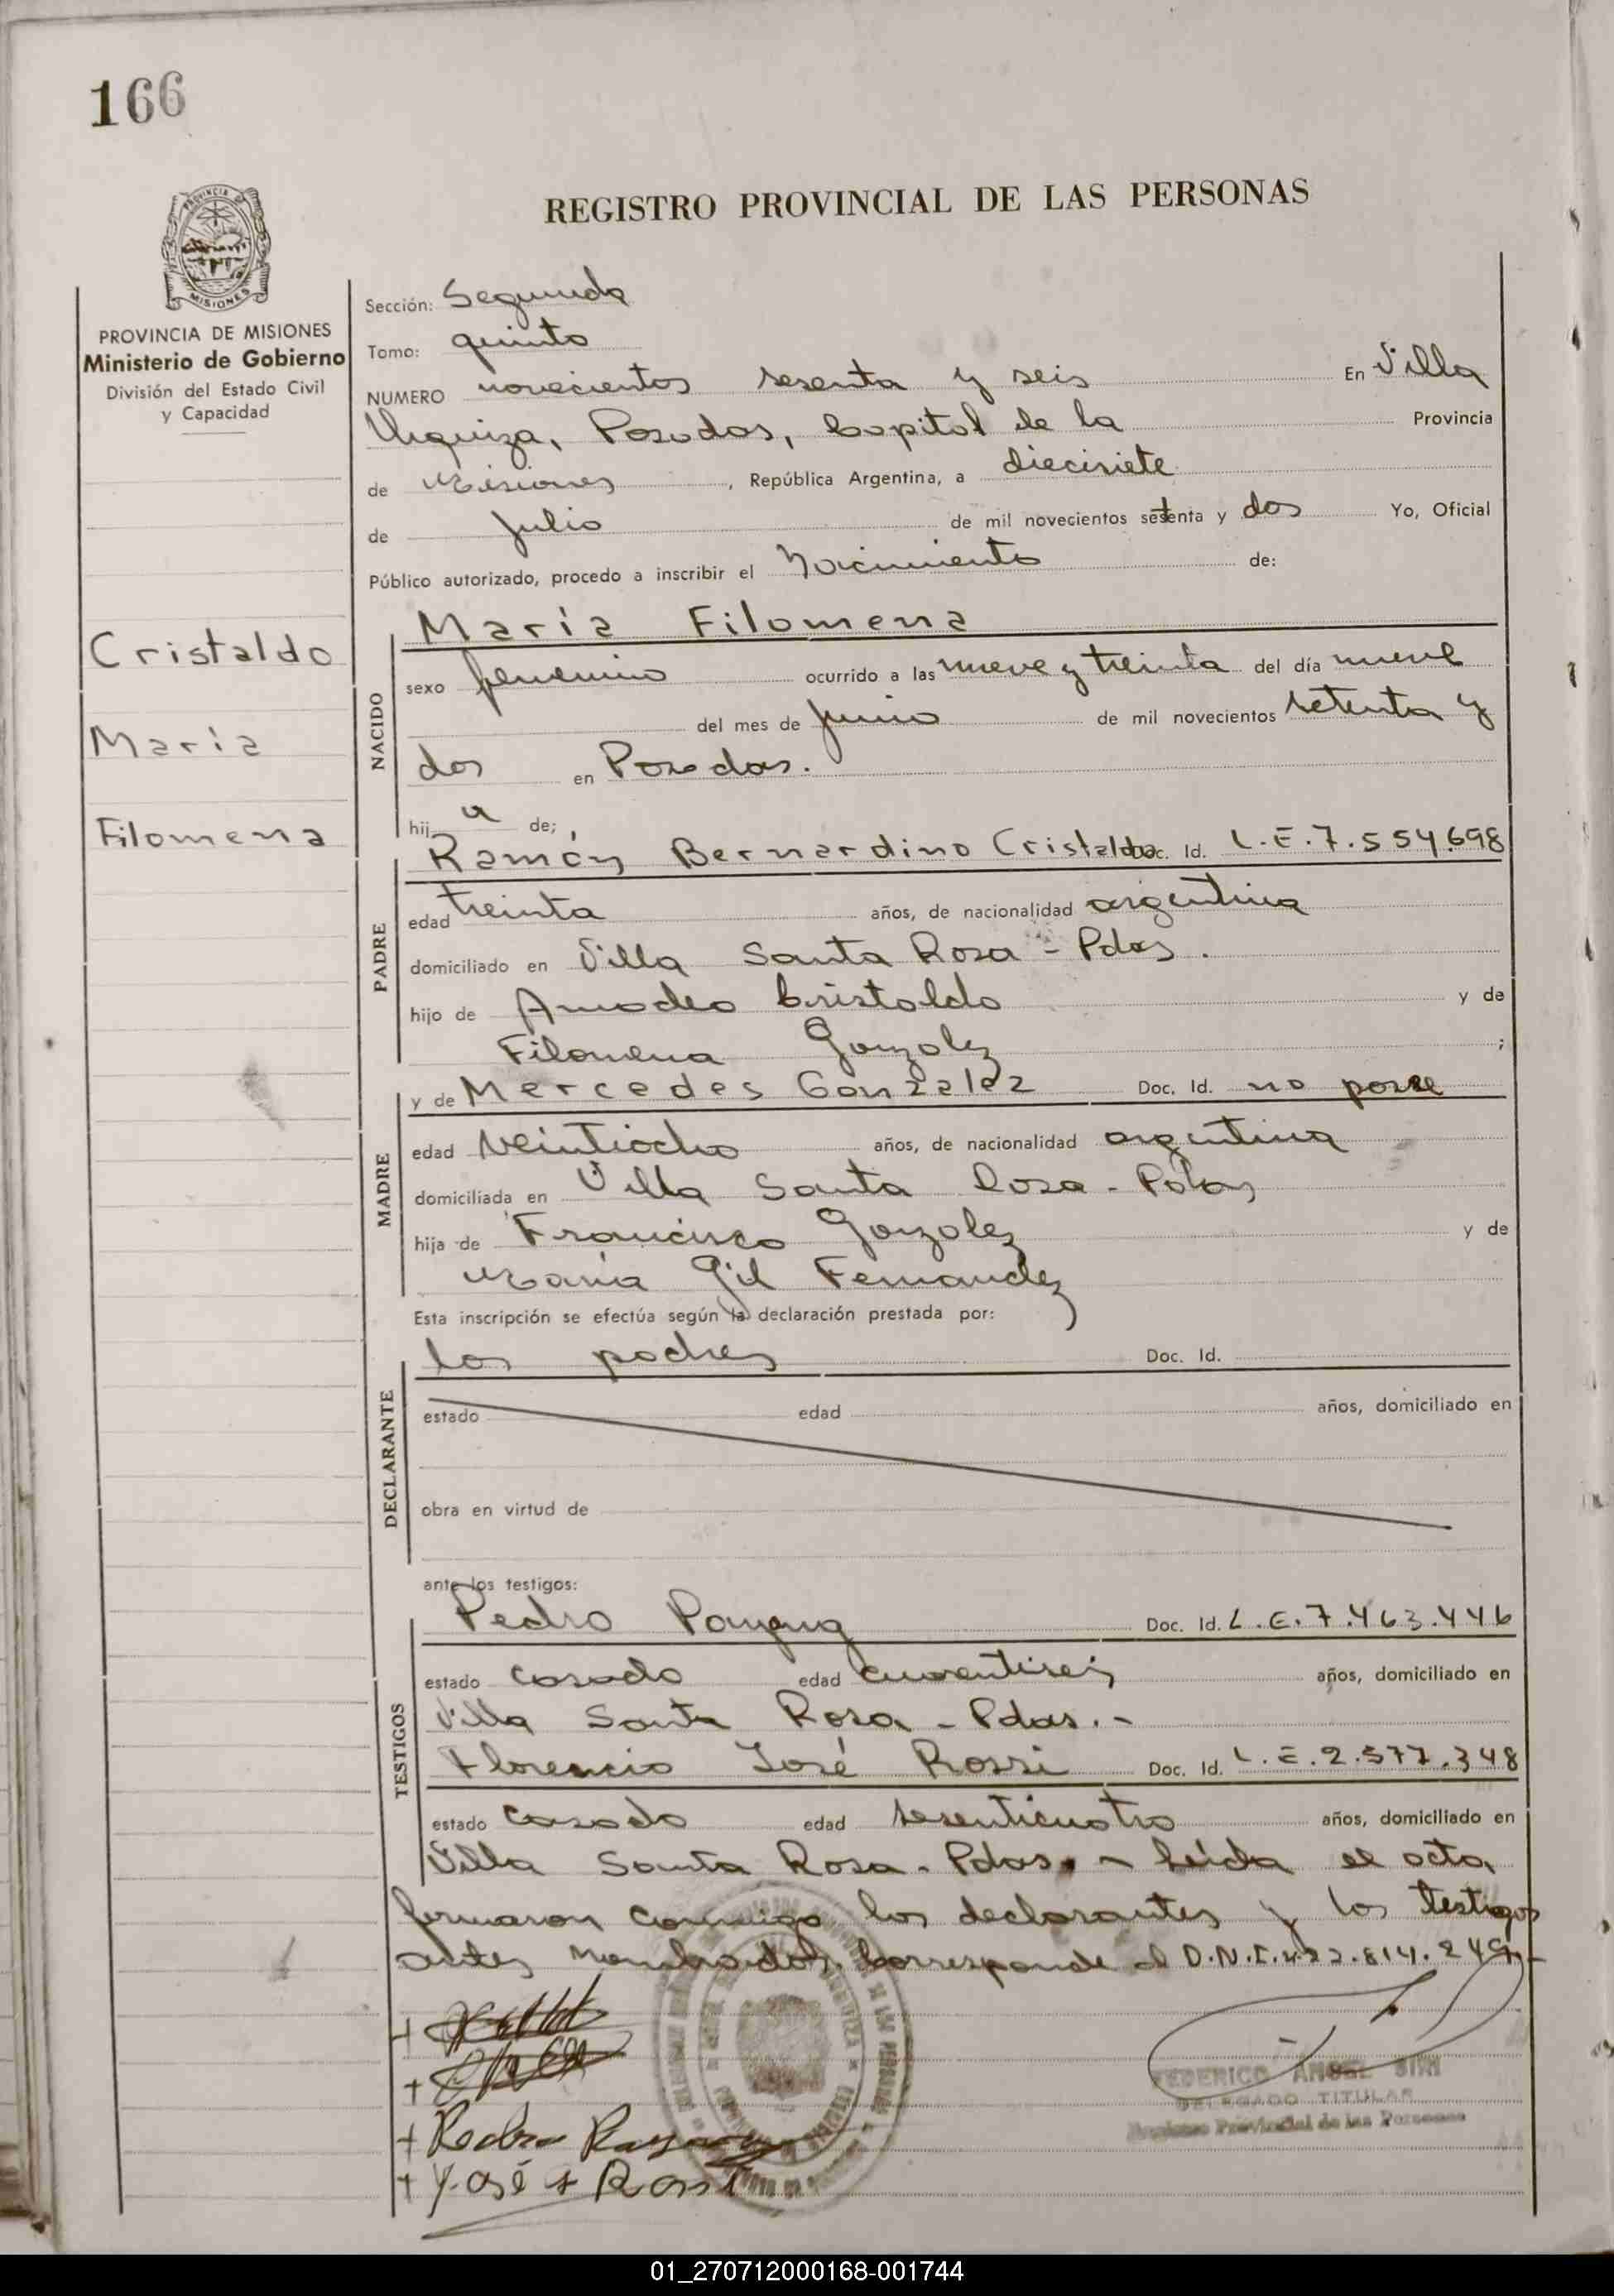 166
REGISTRO PROVINCIAL DE LAS PERSONAS
PROVINCIA DE MISIONES
Ministerio de Gobierno
División del Estado Civil
y Capacidad
Cristaldo
María
Filomena
Sección: Segunda
Tomo: quinto
NUMERO novecientos sesenta y seis En Villa
Urquiza, Posadas, Capital de la Provincia
de Misiones, República Argentina, a diecisiete
de Julio de mil novecientos setenta y dos Yo, Oficial
Público autorizado, procedo a inscribir el Nacimiento de:
NACIDO
María Filomena
sexo femenino ocurrido a las nueve y treinta del día nueve
del mes de junio de mil novecientos setenta y
dos en Posadas.
hija de;
PADRE
Ramón Bernardino Cristaldo Doc. Id. L.E.7.554.698
edad treinta años, de nacionalidad argentina
domiciliado en Villa Santa Rosa - Pdas.
hijo de Amadeo Cristaldo y de
Filomena Gonzalez ;
MADRE
y de Mercedes Gonzalez Doc. Id. no posee
edad veintiocho años, de nacionalidad argentina
domiciliada en Villa Santa Rosa - Pdas
hija de Francisco Gonzalez y de
María Gil Fernandez
Esta inscripción se efectúa según la declaración prestada por:
DECLARANTE
los padres Doc. Id.
estado edad años, domiciliado en
obra en virtud de
ante los testigos:
TESTIGOS
Pedro Doc. Id. L.E.7.463.446
estado casado edad cuarentiseis años, domiciliado en
Villa Santa Rosa - Pdas. -
Florencio José Rossi Doc. Id. L.E.2.577.348
estado casado edad sesenticuatro años, domiciliado en
Villa Santa Rosa - Pdas. - Leída el acta
firmaron conmigo los declarantes y los testigos
antes nombrados. Corresponde al D.N.I.
Pedro
José Rossi
FEDERICO ANGEL SINI
DELEGADO TITULAR
Registro Provincial de las Personas
01_270712000168-001744